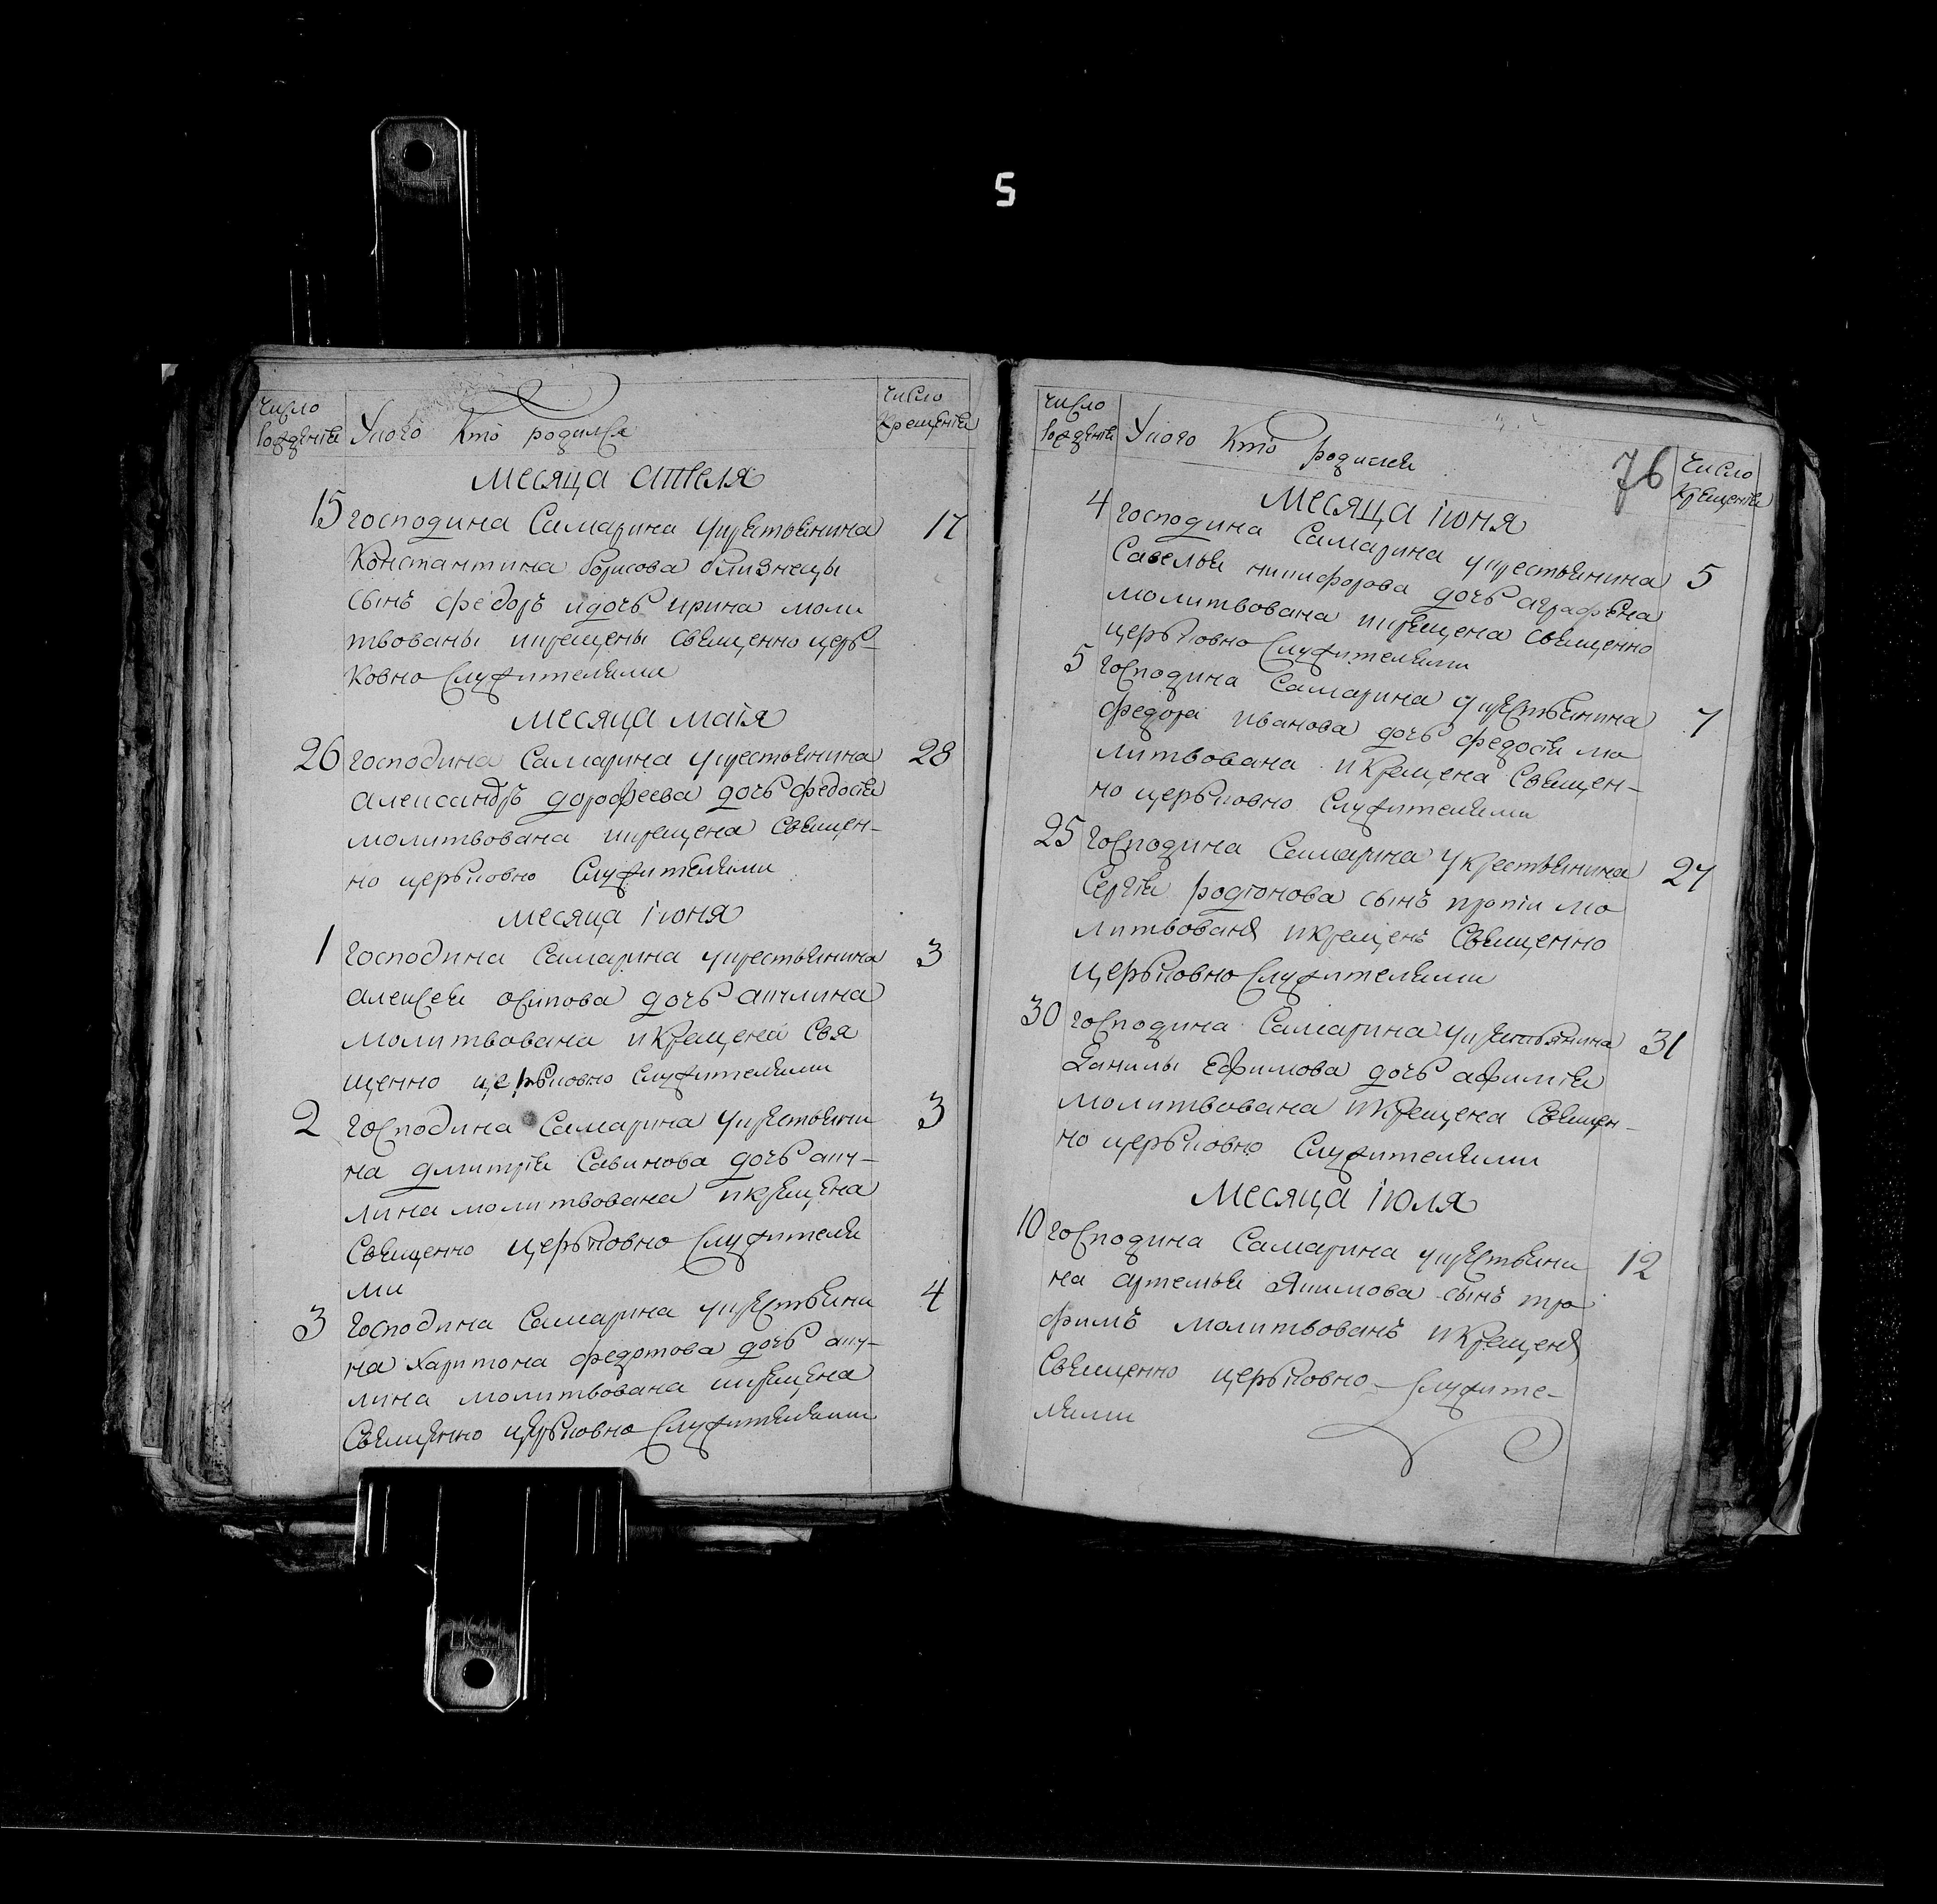 5
число рождения
У кого кто родился
число крещения
месяца апреля
15 господина Самарина укрестьянина 17
Константина борисова близнецы
сынъ федоръ идочь ирина моли
твованы икрещены священно церь-
ковно служителями
месяца маия
26 господина Самарина укрестьянина 28
александръ дорофеева дочь федосия
молитвована икрещена священ-
но церьковно служителями
месяца июня
1 господина Самарина укрестьянина 3
алексея осипова дочь акулина
молитвована икрещена свя
щенно церьковно служителями
2 господина Самарина укрестьяни 3
на дмитрия Савинова дочь аку-
лина молитвована икрещена
священно церьковно служителя
ми
3 господина Самарина укрестьяни 4
на харитона федотова дочь аку-
лина молитвована икрещена
священно церьковно служителями
число рождения
У кого кто родился
76
число крещения
месяца июня
4 господина Самарина укрестьянина 5
Савелья никифорова дочь аграфена
молитвована икрещена священно
церьковно служителями
5 господина Самарина укрестьянина 7
федора иванова дочь федосия мо
литвована икрещена священ-
но церьковно служителями
25 господина Самарина укрестьянина 27
Сергия родионова сынъ мо
литвованъ икрещенъ священно
церьковно служителями
30 господина Самарина укрестьянина 31
данилы Ефимова дочь афимия
молитвована икрещена священ-
но церьковно служителями
месяца июля
10 господина Самарина укрестьяни 12
на артемья якимова сынъ тро
фимъ молитвованъ икрещенъ
священно церьковно служите-
лями